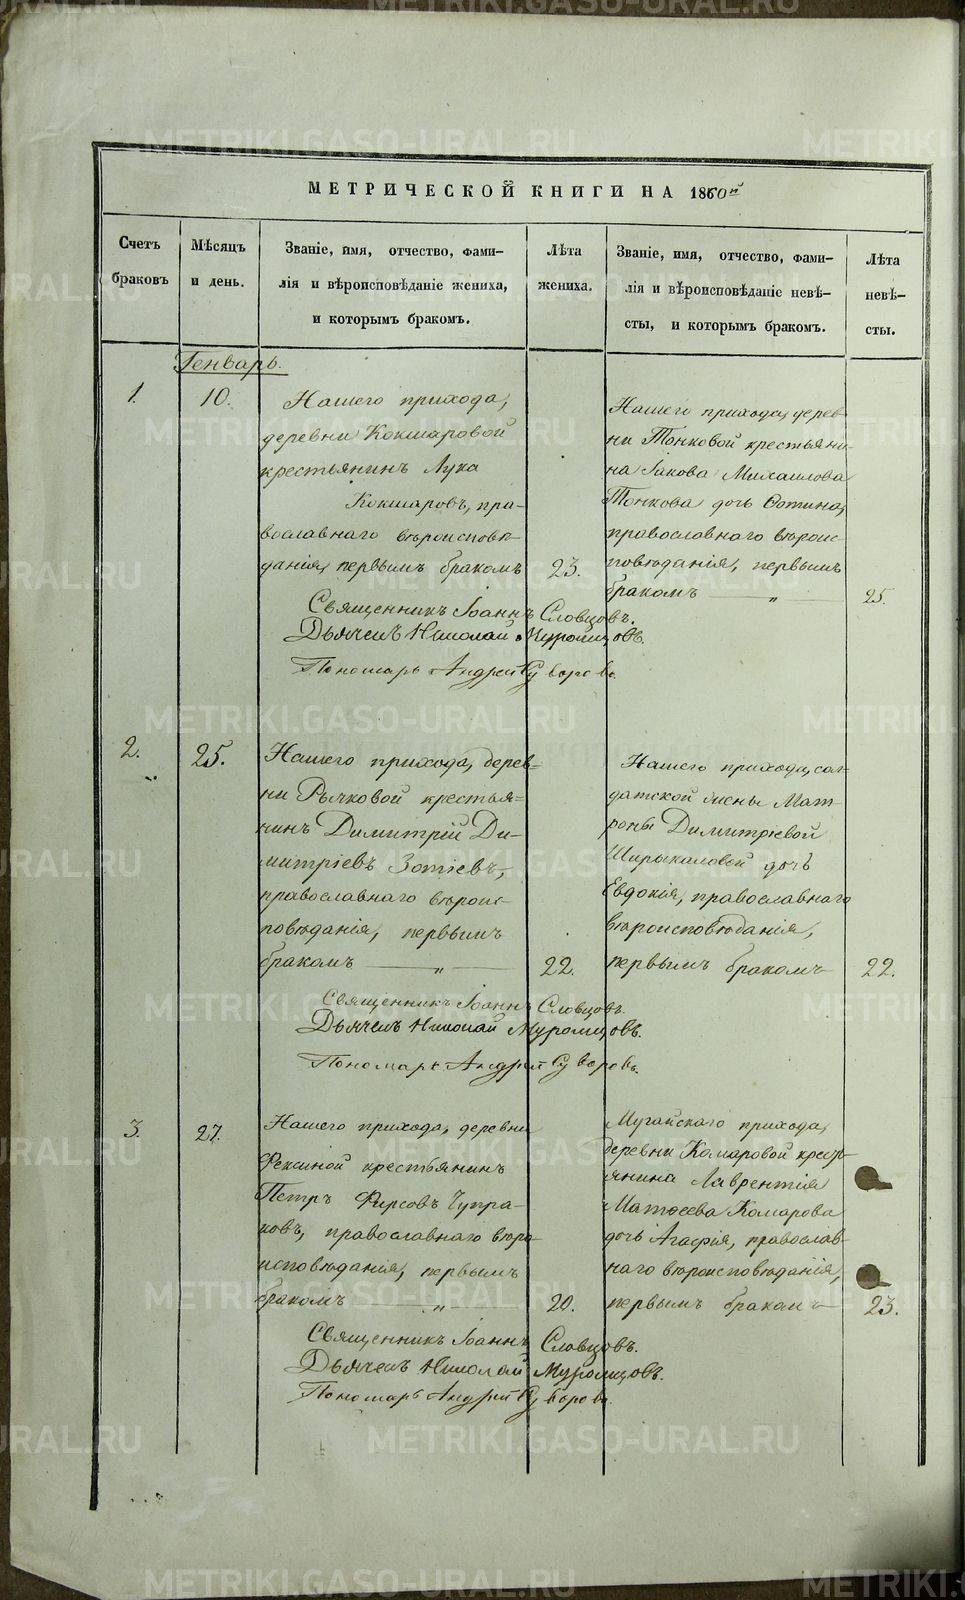 МЕТРИЧЕСКОЙ КНИГИ НА 1860й
Счетъ
браковъ
Мѣсяцъ
и день.
Званіе, имя, отчество, фами-
лія и вѣроисповѣданіе жениха,
и которымъ бракомъ.
Лѣта
жениха.
Званіе, имя, отчество, фами-
лія и вѣроисповѣданіе невѣ-
сты, и которымъ бракомъ.
Лѣта
невѣ-
сты.
Генварь.
1.
10.
Нашего прихода,
деревни Кокшаровой
крестьянинъ Лука
Кокшаровъ, пра-
вославнаго вѣроисповѣ-
данія, первымъ бракомъ
23.
Нашего прихода, дерев-
ни Тонковой крестьяни-
на Іакова Михаилова
Тонкова дочь Фотина,
православнаго вѣроис-
повѣданія, первымъ
бракомъ — „ —
25.
Священникъ Іоаннъ Словцовъ.
Дьячекъ Николай Муромцовъ.
Пономарь Андрей Суворовъ.
2.
25.
Нашего прихода, дерев-
ни Рычковой крестья-
нинъ Димитрій Ди-
митріевъ Зотіевъ,
православнаго вѣроис-
повѣданія, первымъ
бракомъ — „ —
22.
Нашего прихода, сол-
датской жены Мат-
роны Димитріевой
Ширыкаловой дочь
Евдокія, православнаго
вѣроисповѣданія,
первымъ бракомъ
22.
Священникъ Іоаннъ Словцовъ.
Дьячекъ Николай Муромцовъ.
Пономарь Андрей Суворовъ.
3.
27.
Нашего прихода, деревни
Фекиной крестьянинъ
Петръ Фирсовъ Чупра-
ковъ, православнаго вѣро-
исповѣданія, первымъ
бракомъ — „ —
20.
Мугайскаго прихода,
деревни Комаровой крест-
янина Лаврентія
Матѳеева Комарова
дочь Агафія, православ-
наго вѣроисповѣданія,
первымъ бракомъ
23.
Священникъ Іоаннъ Словцовъ.
Дьячекъ Николай Муромцовъ.
Пономарь Андрей Суворовъ.
METRIKI.GASO-URAL.RU